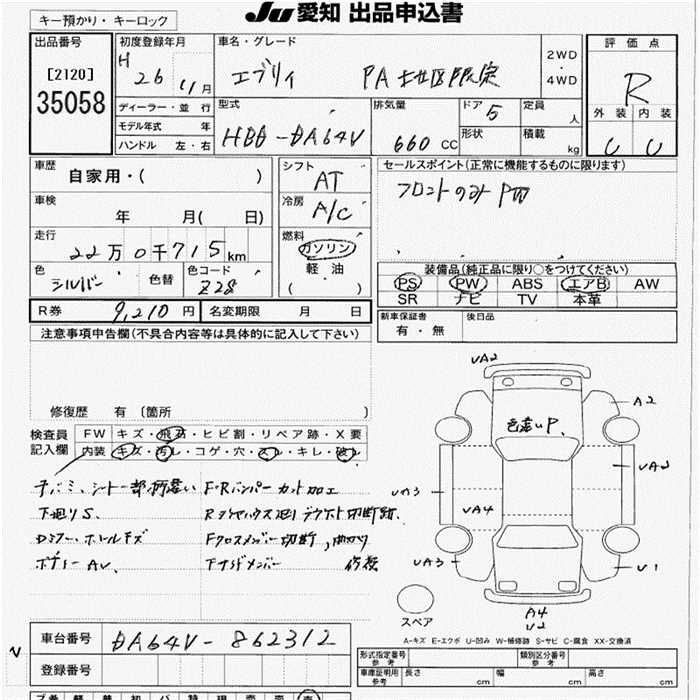 JU 愛知 出品申込書
キー預かり・キーロック
出品番号
[2120]
35058
初度登録年月
H 26 11月
ディーラー・並行
モデル年式 年
ハンドル 左・右
車名・グレード
エブリィ PA 地区限定
2WD
・
4WD
型式
HBD-DA64V
排気量
660 CC
ドア 5
形状
定員
人
積載
kg
評価点
R
外装 内装
U U
車歴
自家用・( )
車検
年 月( 日)
走行
22万0千715km
色
シルバー
色替
色コード
Z28
シフト
AT
冷房
A/C
燃料
ガソリン
・
軽油
( )
セールスポイント(正常に機能するものに限ります)
フロントのみPW
装備品(純正品に限り○をつけてください)
PS PW ABS エアB AW
SR ナビ TV 本革
R券 9,210円 名変期限 月 日
新車保証書
有・無
後日品
注意事項申告欄(不具合内容等は具体的に記入して下さい)
修復歴 有〔箇所 〕
検査員
記入欄
FW キズ・飛石・ヒビ割・リペア跡・X要
内装 キズ・汚レ・コゲ・穴・スレ・キレ・破レ
チバミ、シート一部柄違い F・Rバンパーカット加工
下廻りS.
Fクロスメンバー切断、曲がり
ボディーAV.
VA2
A2
色違いP.
VA2
VA3
VA4
VA3
V1
A4
V2
スペア
A-キズ E-エクボ U-凹み W-補修跡 S-サビ C-腐食 XX-交換済
車台番号 DA64V-862312
登録番号
形式指定番号
参考
類別区分番号
参考
車庫証明用
参考
長さ cm 幅 cm 高さ cm